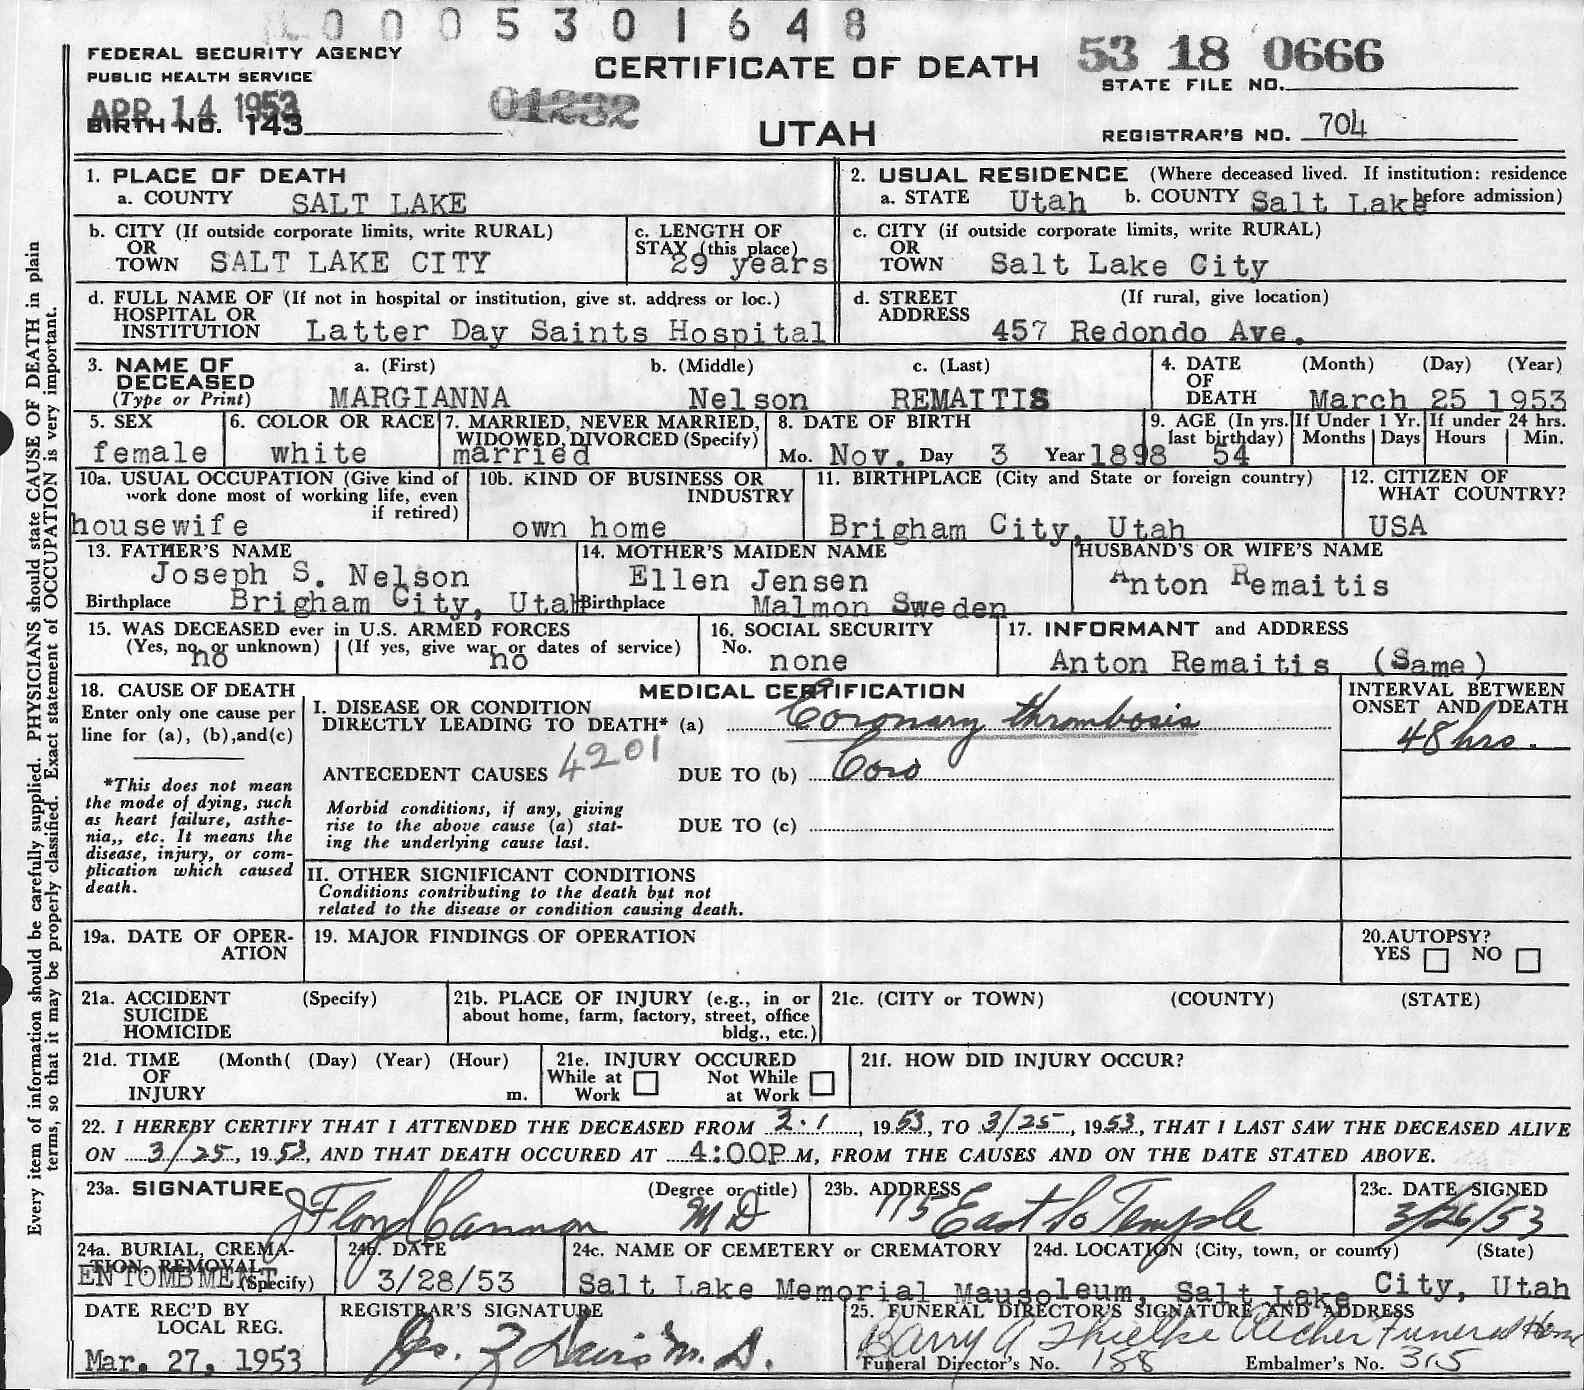 0005301648
FEDERAL SECURITY AGENCY
PUBLIC HEALTH SERVICE
APR 14 1953
BIRTH NO. 143
01232
CERTIFICATE OF DEATH
UTAH
53 18 0666
STATE FILE NO.
REGISTRAR'S NO. 704
Every item of information should be carefully supplied. PHYSICIANS should state CAUSE OF DEATH in plain
terms, so that it may be properly classified. Exact statement of OCCUPATION is very important.
1. PLACE OF DEATH
a. COUNTY SALT LAKE
2. USUAL RESIDENCE (Where deceased lived. If institution: residence
a. STATE Utah b. COUNTY Salt Lake before admission)
b. CITY (If outside corporate limits, write RURAL)
OR
TOWN SALT LAKE CITY
c. LENGTH OF
STAY (this place)
29 years
c. CITY (if outside corporate limits, write RURAL)
OR
TOWN Salt Lake City
d. FULL NAME OF (If not in hospital or institution, give st. address or loc.)
HOSPITAL OR
INSTITUTION Latter Day Saints Hospital
d. STREET (If rural, give location)
ADDRESS
457 Redondo Ave.
3. NAME OF a. (First) b. (Middle) c. (Last)
DECEASED
(Type or Print) MARGIANNA Nelson REMAITIS
4. DATE (Month) (Day) (Year)
OF
DEATH March 25 1953
5. SEX
female
6. COLOR OR RACE
white
7. MARRIED, NEVER MARRIED,
WIDOWED, DIVORCED (Specify)
married
8. DATE OF BIRTH
Mo. Nov. Day 3 Year 1898
9. AGE (In yrs.
last birthday)
54
If Under 1 Yr.
Months Days
If under 24 hrs.
Hours Min.
10a. USUAL OCCUPATION (Give kind of
work done most of working life, even
if retired)
housewife
10b. KIND OF BUSINESS OR
INDUSTRY
own home
11. BIRTHPLACE (City and State or foreign country)
Brigham City, Utah
12. CITIZEN OF
WHAT COUNTRY?
USA
13. FATHER'S NAME
Joseph S. Nelson
Birthplace Brigham City, Utah
14. MOTHER'S MAIDEN NAME
Ellen Jensen
Birthplace Malmon Sweden
HUSBAND'S OR WIFE'S NAME
Anton Remaitis
15. WAS DECEASED ever in U.S. ARMED FORCES
(Yes, no, or unknown) (If yes, give war or dates of service)
no no
16. SOCIAL SECURITY
No.
none
17. INFORMANT and ADDRESS
Anton Remaitis (Same)
18. CAUSE OF DEATH
Enter only one cause per
line for (a), (b),and(c)
*This does not mean
the mode of dying, such
as heart failure, asthe-
nia,, etc. It means the
disease, injury, or com-
plication which caused
death.
MEDICAL CERTIFICATION
I. DISEASE OR CONDITION
DIRECTLY LEADING TO DEATH* (a) Coronary thrombosis
4201
ANTECEDENT CAUSES DUE TO (b) Coro
Morbid conditions, if any, giving
rise to the above cause (a) stat-
ing the underlying cause last.
DUE TO (c)
II. OTHER SIGNIFICANT CONDITIONS
Conditions contributing to the death but not
related to the disease or condition causing death.
INTERVAL BETWEEN
ONSET AND DEATH
48 hrs.
19a. DATE OF OPER-
ATION
19. MAJOR FINDINGS OF OPERATION
20.AUTOPSY?
YES NO
21a. ACCIDENT (Specify)
SUICIDE
HOMICIDE
21b. PLACE OF INJURY (e.g., in or
about home, farm, factory, street, office
bldg., etc.)
21c. (CITY or TOWN) (COUNTY) (STATE)
21d. TIME (Month( (Day) (Year) (Hour)
OF
INJURY m.
21e. INJURY OCCURED
While at Not While
Work at Work
21f. HOW DID INJURY OCCUR?
22. I HEREBY CERTIFY THAT I ATTENDED THE DECEASED FROM 2.1, 1953, TO 3/25, 1953, THAT I LAST SAW THE DECEASED ALIVE
ON 3/25, 1953, AND THAT DEATH OCCURED AT 4:00P M, FROM THE CAUSES AND ON THE DATE STATED ABOVE.
23a. SIGNATURE (Degree or title)
J Floyd Cannon MD
23b. ADDRESS
115 East So Temple
23c. DATE SIGNED
3/26/53
24a. BURIAL, CREMA-
TION, REMOVAL
ENTOMBMENT (Specify)
24b. DATE
3/28/53
24c. NAME OF CEMETERY or CREMATORY
Salt Lake Memorial Mausoleum,
24d. LOCATION (City, town, or county) (State)
Salt Lake City, Utah
DATE REC'D BY
LOCAL REG.
Mar. 27, 1953
REGISTRAR'S SIGNATURE
Jos. Z Davis M. D.
25. FUNERAL DIRECTOR'S SIGNATURE AND ADDRESS
Barry A Thielke Aicher Funeral Home
Funeral Director's No. 188 Embalmer's No. 315